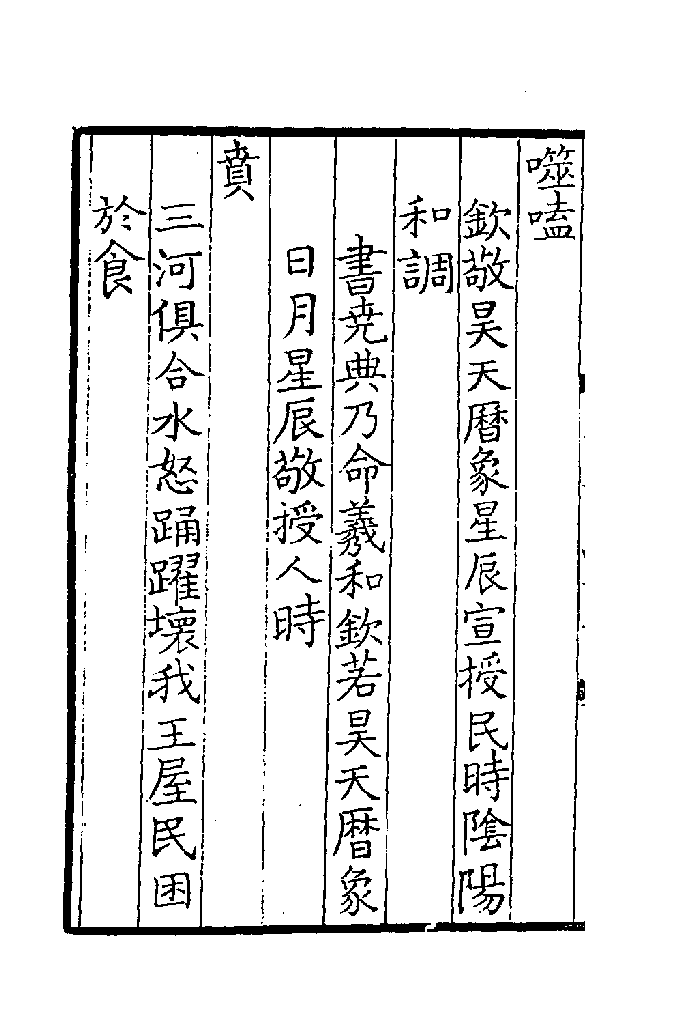 噬嗑
欽敬昊天曆象星辰宣授民時陰陽
和調
書堯典乃命羲和欽若昊天曆象
日月星辰敬授人時
賁
三河俱合水怒踊躍壞我王屋民困
於食